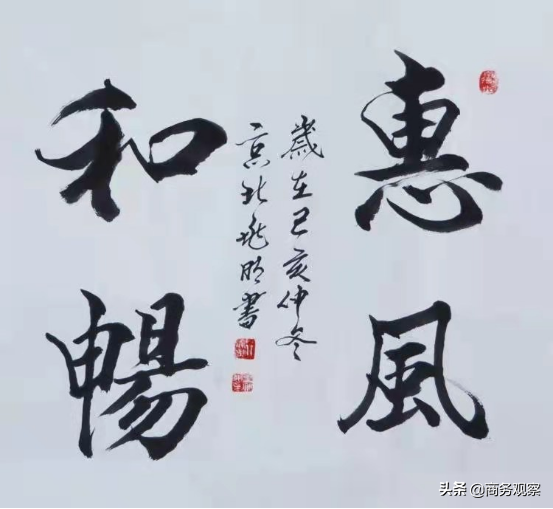 惠風
和暢
歲在己亥仲冬
京北飛明書
头条 @商务观察